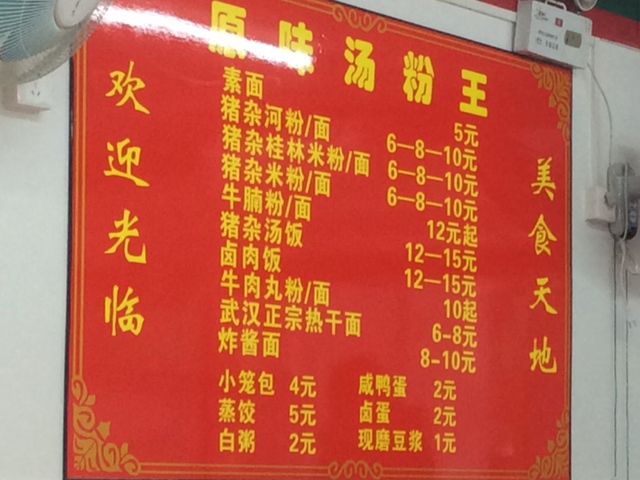 原味汤粉王
欢迎光临
素面 5元
猪杂河粉/面 6—8—10元
猪杂桂林米粉/面 6—8—10元
猪杂米粉/面 6—8—10元
牛腩粉/面 12元起
猪杂汤饭 12—15元
卤肉饭 12—15元
牛肉丸粉/面 10起
武汉正宗热干面 6-8元
炸酱面 8-10元
小笼包 4元 咸鸭蛋 2元
蒸饺 5元 卤蛋 2元
白粥 2元 现磨豆浆 1元
美食天地